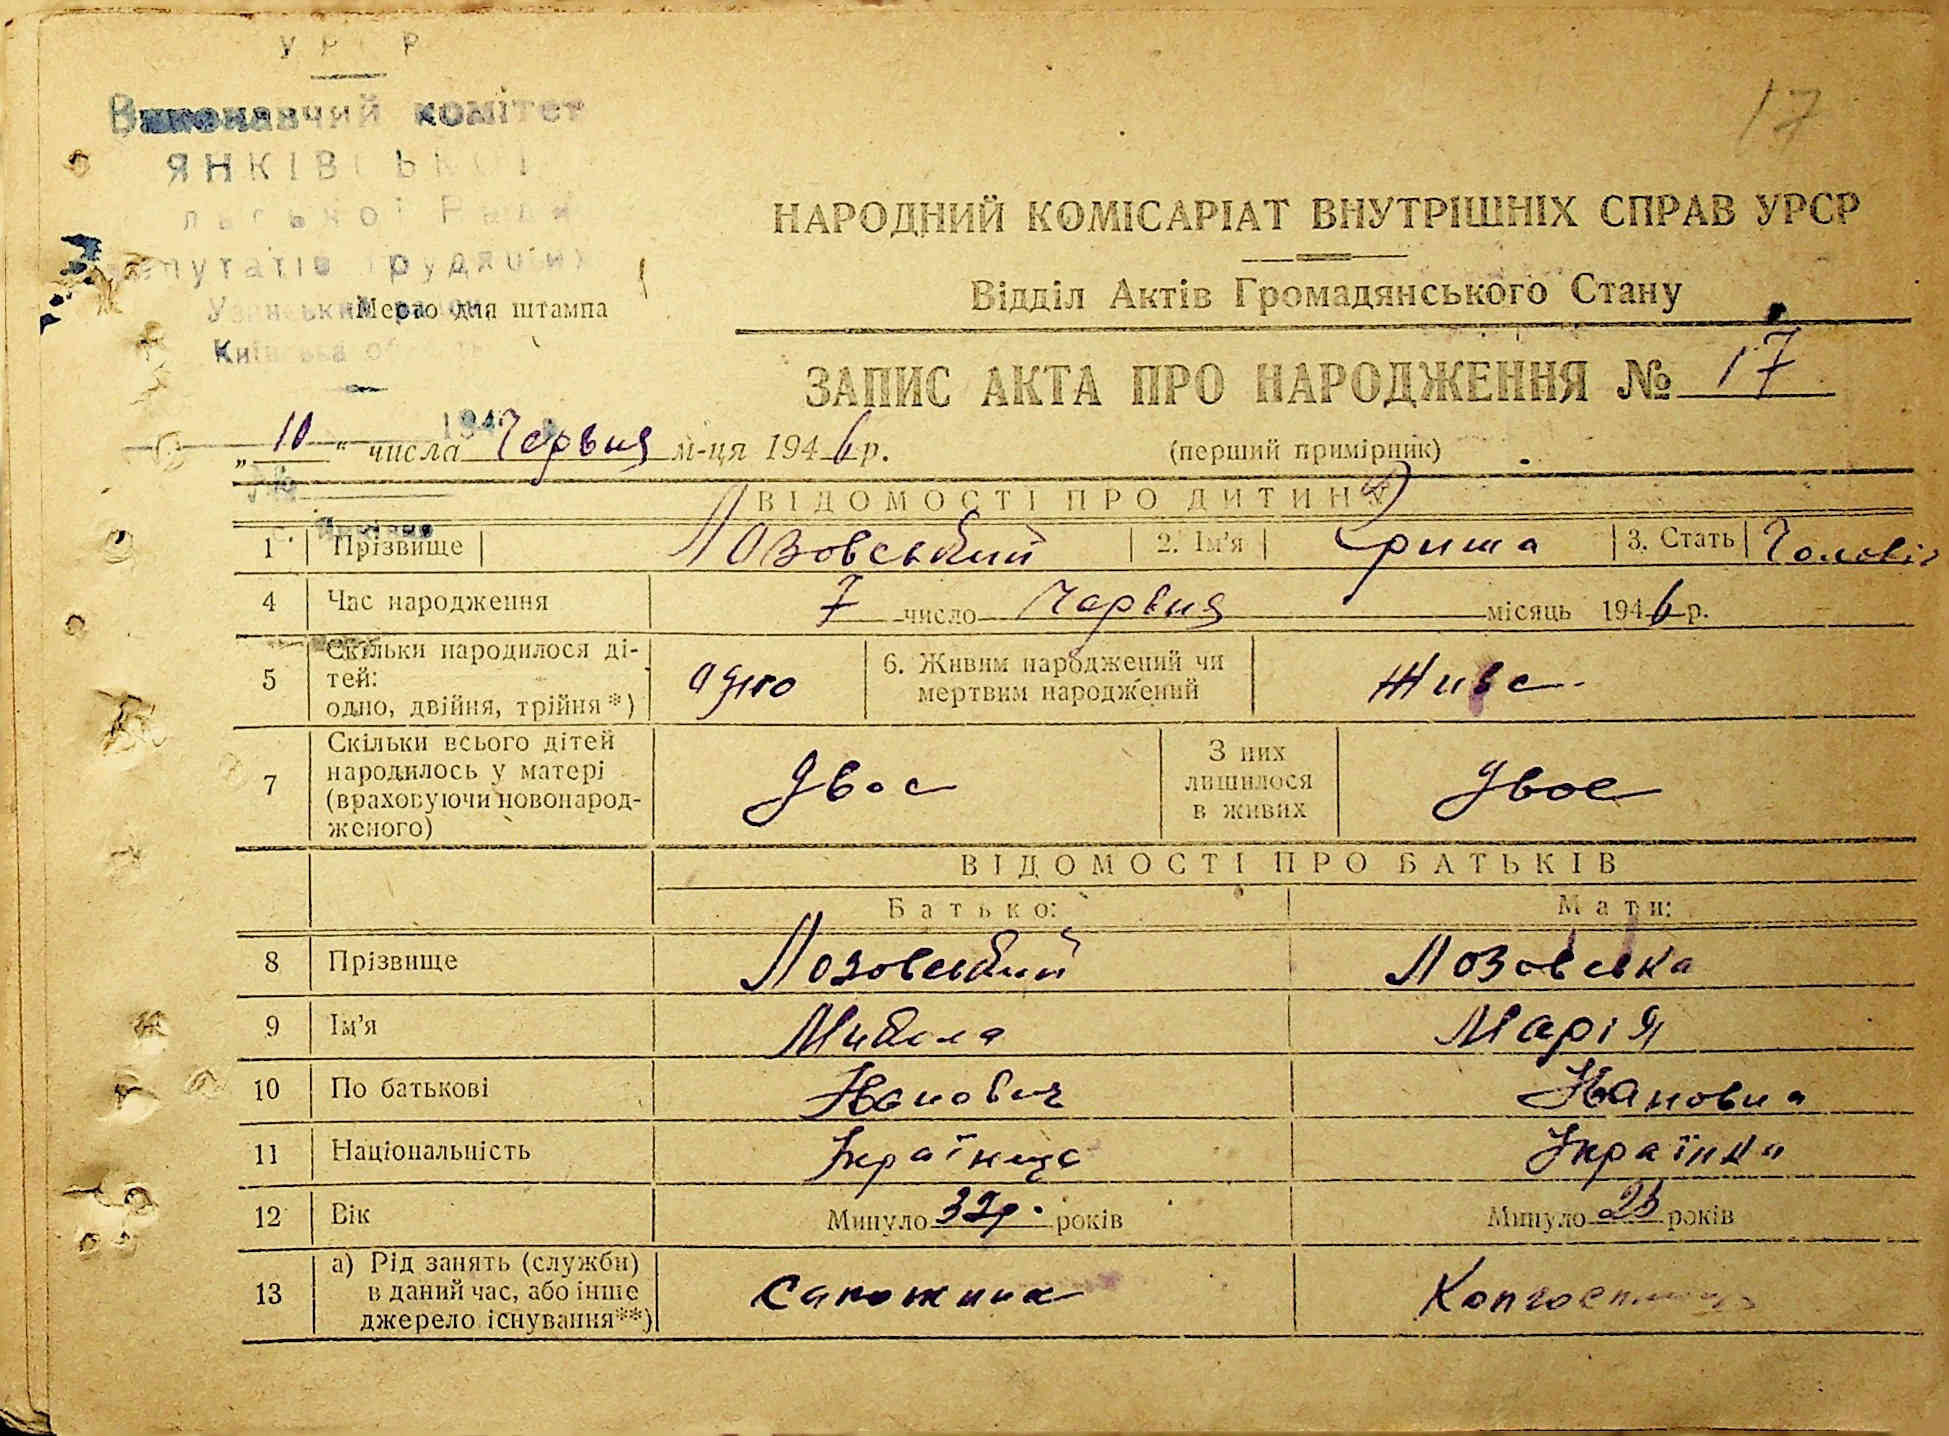 17
УРСР
Виконавчий комітет
ЯНКІВСЬКОЇ
Ради
депутатів трудящих
Узинський район
Київська
Місце для штампа
НАРОДНИЙ КОМІСАРІАТ ВНУТРІШНІХ СПРАВ УРСР
Відділ Актів Громадянського Стану
ЗАПИС АКТА ПРО НАРОДЖЕННЯ № 17
„10“ числа Червня м-ця 1946 р. (перший примірник)
ВІДОМОСТІ ПРО ДИТИНУ
1 Прізвище Лозовський 2. Ім'я Гриша 3. Стать Чолові
4 Час народження 7 число Червня місяць 1946 р.
5 Скільки народилося дітей: одно, двійня, трійня*) одно 6. Живим народжений чи мертвим народжений Живе
7 Скільки всього дітей народилось у матері (враховуючи новонародженого) двоє З них лишилося в живих двоє
ВІДОМОСТІ ПРО БАТЬКІВ
Батько: Мати:
8 Прізвище Лозовський Лозовська
9 Ім'я Микола Марія
10 По батькові Іванович Івановна
11 Національність Українка
12 Вік Минуло 32р. років Минуло років
13 а) Рід занять (служби) в даний час, або інше джерело існування**) Сапожник